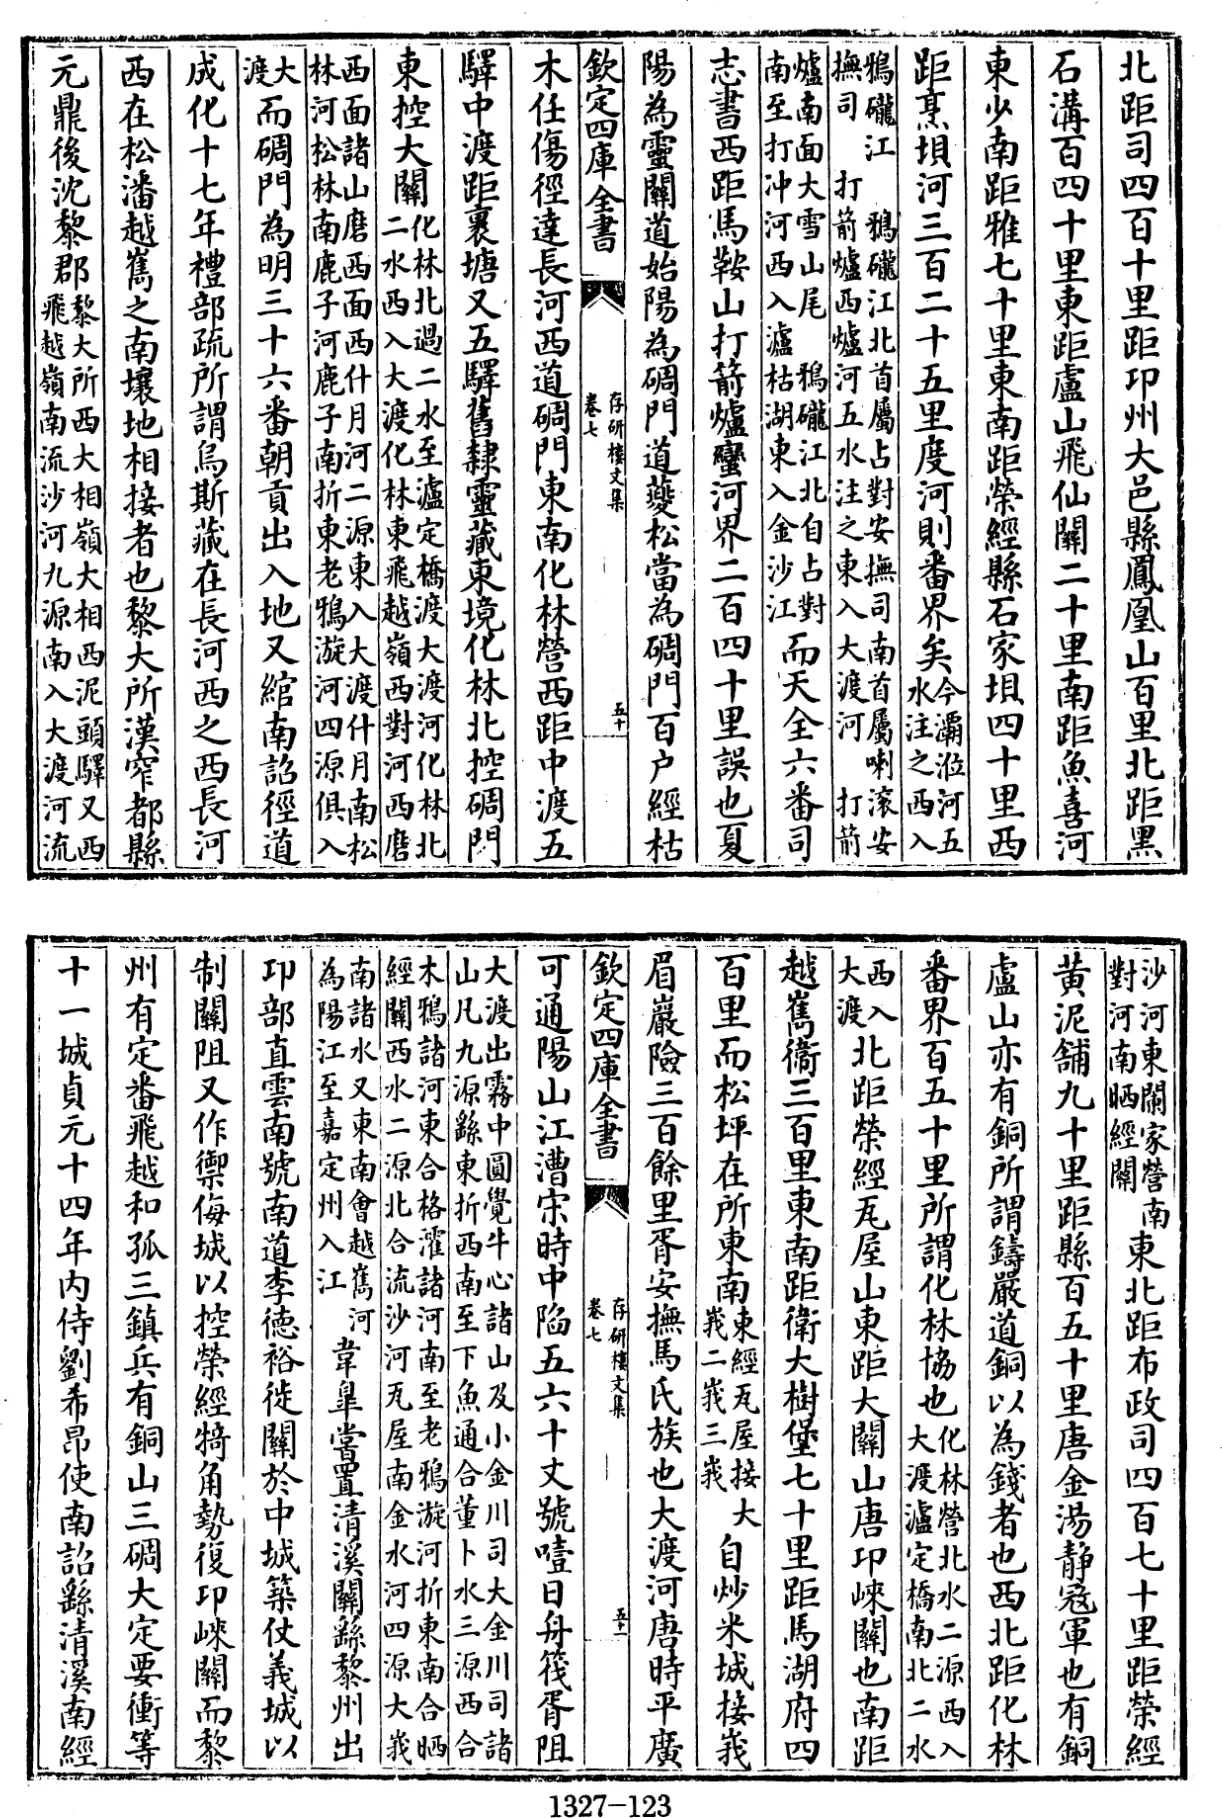 北距司四百十里距邛州大邑縣鳳凰山百里北距黑
石溝百四十里東距盧山飛仙關二十里南距魚喜河
東少南距雅七十里東南距榮經縣石家垻四十里西
距烹垻河三百二十五里度河則番界矣今灞涖河五
水注之西入
鴉礲江　鴉礲江北首屬占對安撫司南首屬喇滚安
撫司　打箭爐西爐河五水注之東入大渡河　打箭
爐南面大雪山尾　鴉礲江北自占對
南至打冲河西入瀘枯湖東入金沙江
而天全六番司
志書西距馬鞍山打箭爐蠻河界二百四十里誤也夏
陽為靈關道始陽為碉門道夔松當為碉門百户經枯
欽定四庫全書
存研樓文集
卷七
五十
木任傷徑達長河西道碉門東南化林營西距中渡五
驛中渡距裏塘又五驛舊隸靈藏東境化林北控碉門
東控大關
化林北過二水至瀘定橋渡大渡河化林北
二水西入大渡化林東飛越嶺西對河西磨
西面諸山磨西面西什月河二源東入大渡什月南松
林河松林南鹿子河鹿子南折東老鴉漩河四源俱入
大
渡
而碉門為明三十六番朝貢出入地又綰南詔徑道
成化十七年禮部疏所謂烏斯藏在長河西之西長河
西在松潘越嶲之南壤地相接者也黎大所漢窄都縣
元鼎後沈黎郡
黎大所西大相嶺大相西泥頭驛又西
飛越嶺南流沙河九源南入大渡河流
沙河東關家營南
對河南晒經關
東北距布政司四百七十里距榮經
黄泥舖九十里距縣百五十里唐金湯靜寇軍也有銅
盧山亦有銅所謂鑄嚴道銅以為錢者也西北距化林
番界百五十里所謂化林協也
化林營北水二源西入
大渡瀘定橋南北二水
西入
大渡
北距榮經瓦屋山東距大關山唐邛崍關也南距
越嶲衞三百里東南距衛大樹堡七十里距馬湖府四
百里而松坪在所東南
東經瓦屋接大
峩二峩三峩
自炒米城接峩
眉巖險三百餘里胥安撫馬氏族也大渡河唐時平廣
欽定四庫全書
存研樓文集
卷七
五十一
可通陽山江漕宋時中陷五六十丈號噎日舟筏胥阻
大渡出霧中圓覺牛心諸山及小金川司大金川司諸
山凡九源繇東折西南至下魚通合董卜水三源西合
木鴉諸河東合格濯諸河南至老鴉漩河折東南合晒
經關西水二源北合流沙河瓦屋南金水河四源大峩
南諸水又東南會越嶲河
為陽江至嘉定州入江
韋臯嘗置清溪關繇黎州出
邛部直雲南號南道李德裕徙關於中城築仗義城以
制關阻又作禦侮城以控榮經犄角勢復邛崍關而黎
州有定番飛越和孤三鎮兵有銅山三碉大定要衝等
十一城貞元十四年内侍劉希昂使南詔繇清溪南經
1327-123